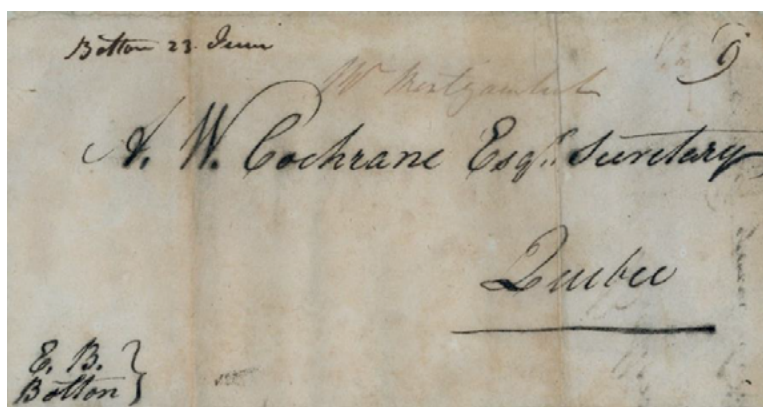 Bolton 23 June
9
A. W. Cochrane Esqr. Secretary
Quebec
E. B.
Bolton